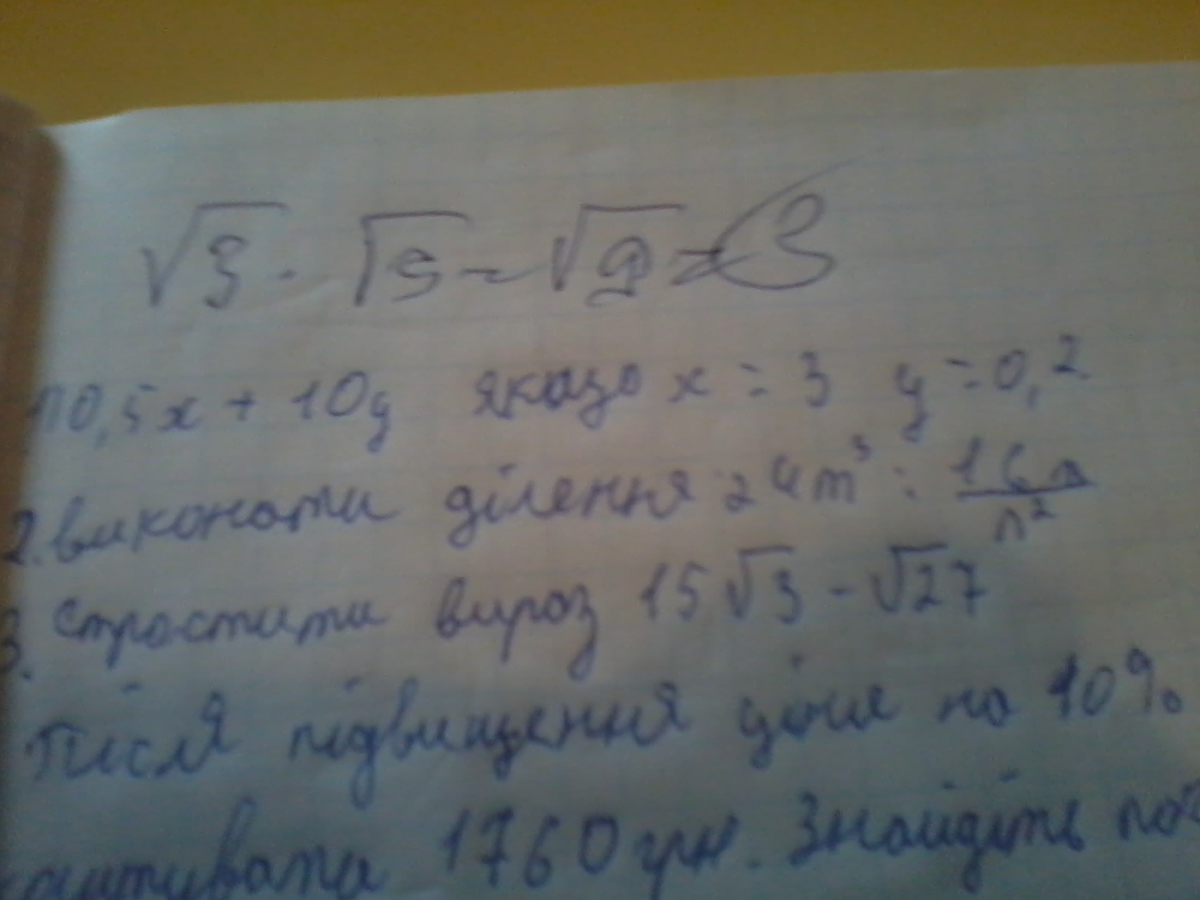 √3 · √3 = √9 = 3
1) 0,5x + 10y якщо x = 3 y = 0,2
2. виконати ділення 24m³ :
3. Спростити вираз 15√3 - √27
Після підвищення ціни на 10%
коштувати 1760 грн. Знайдіть